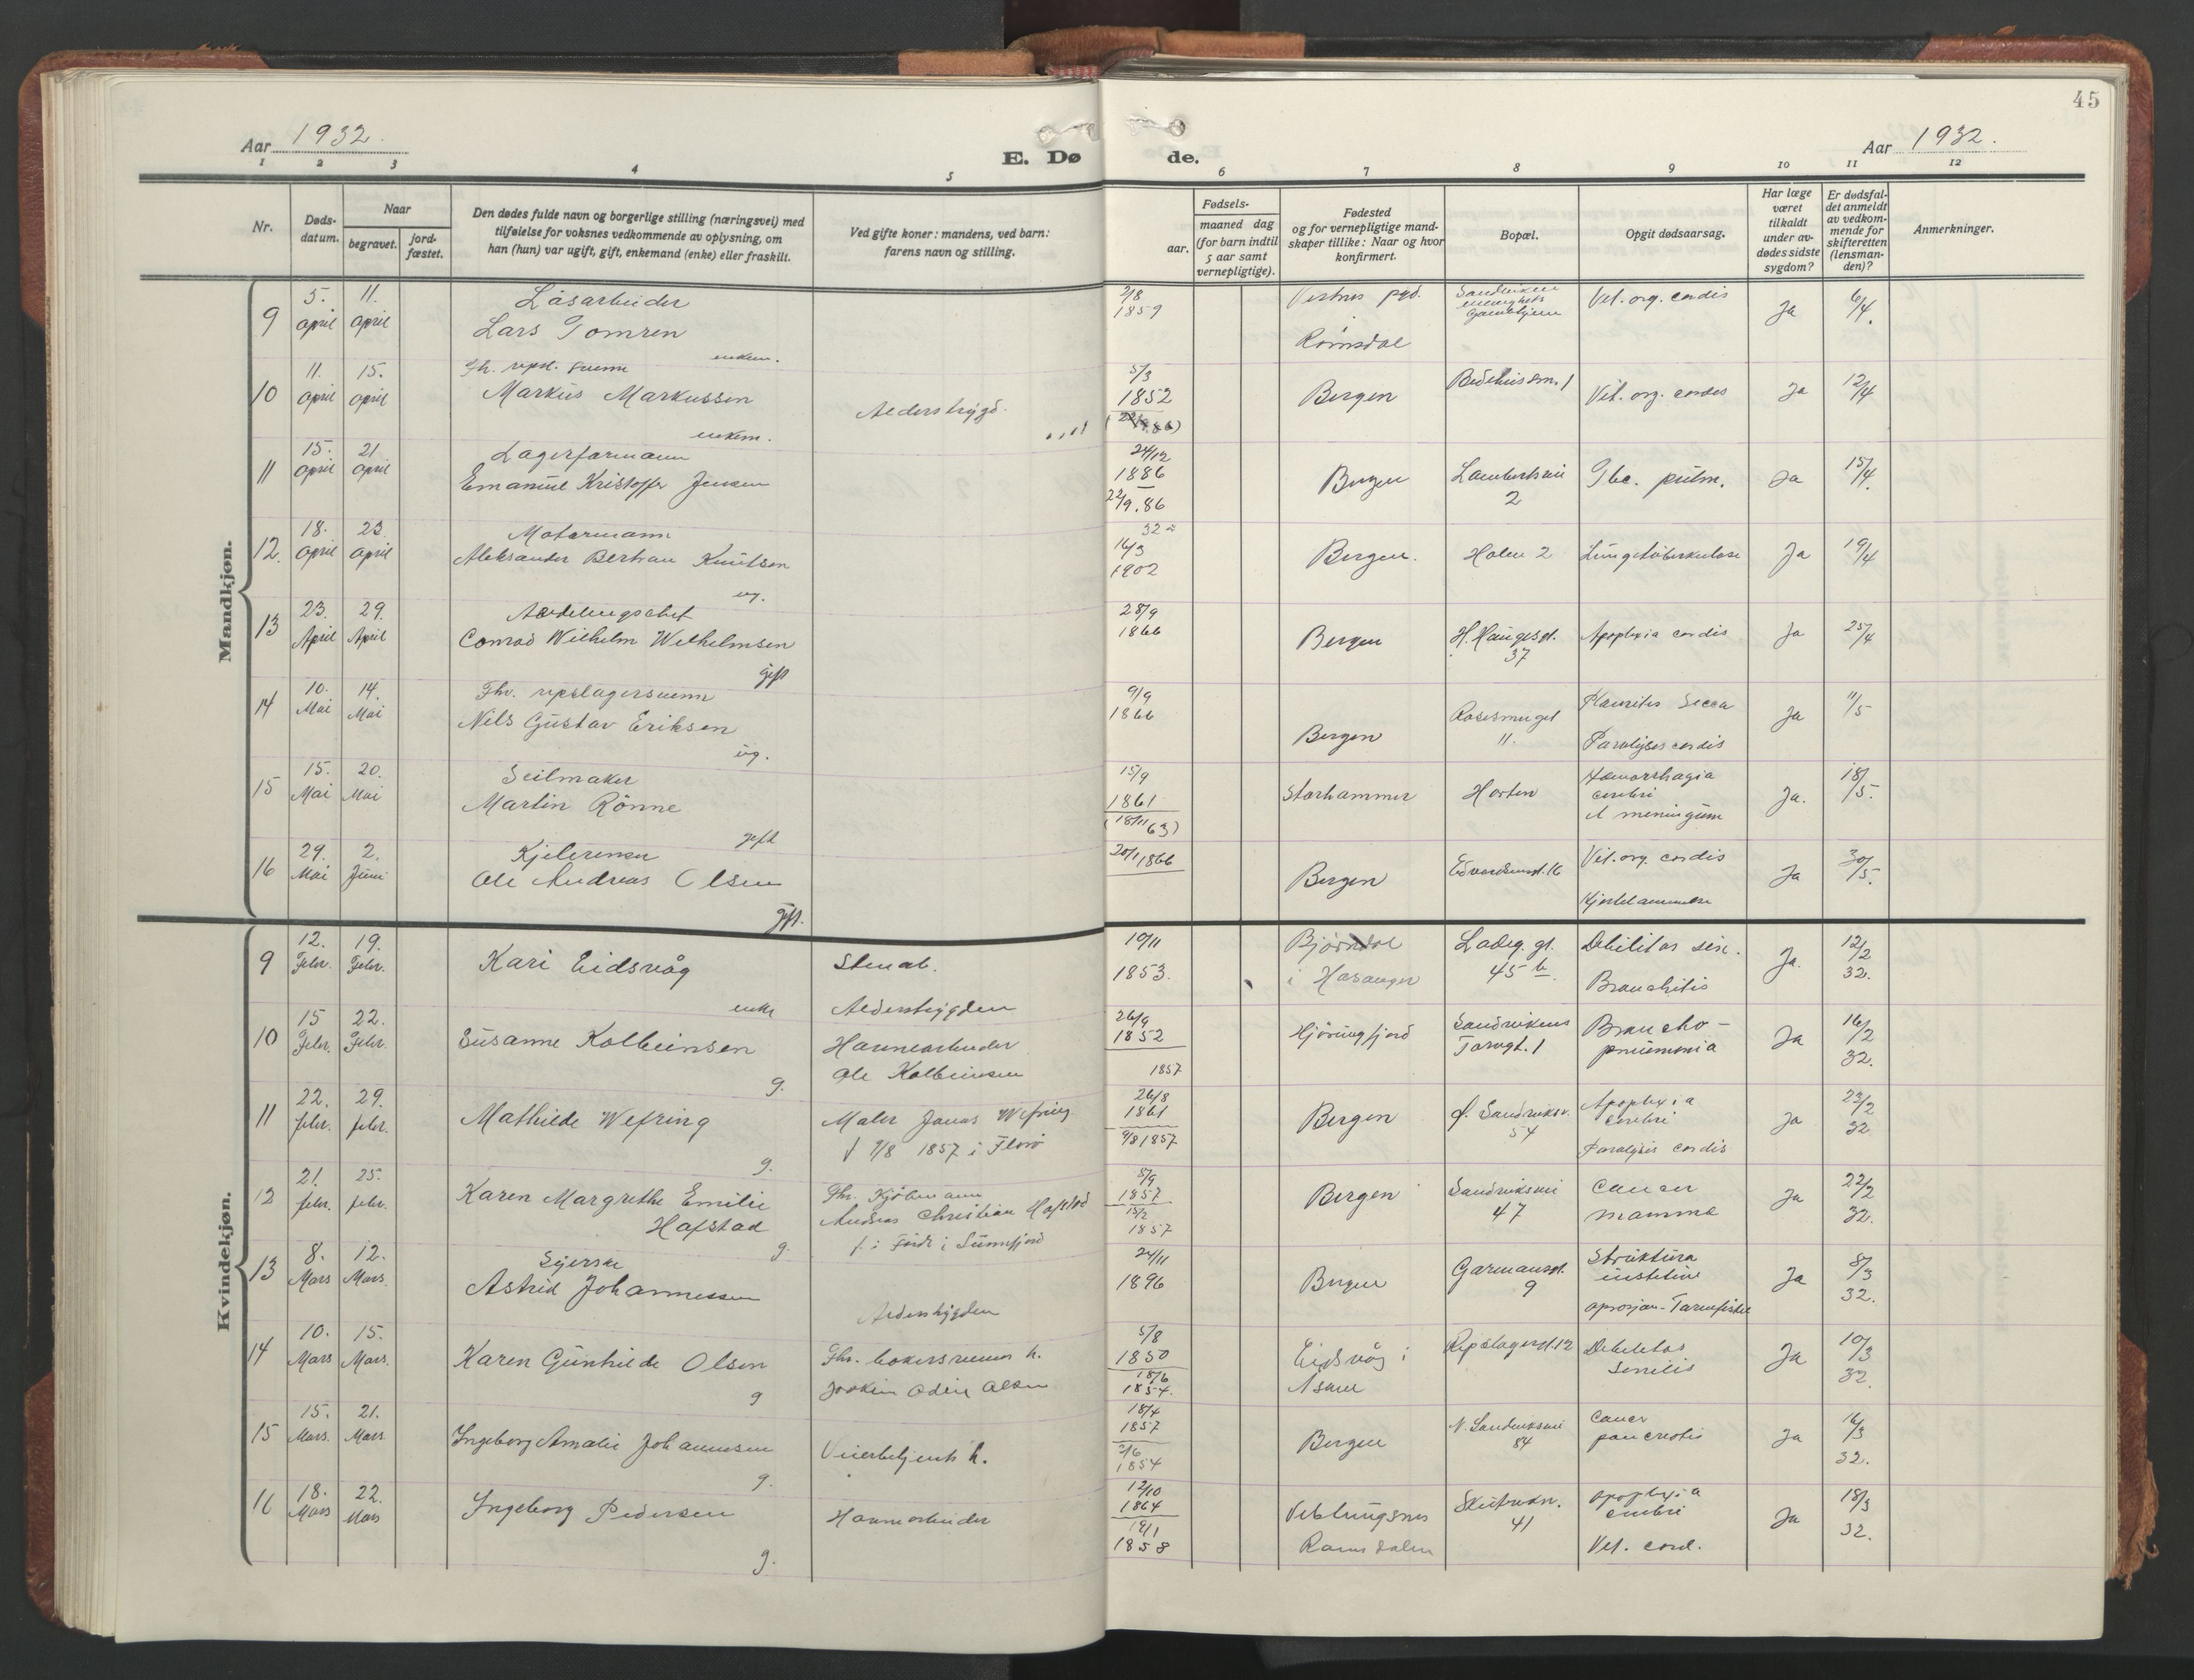 45
Aar 1932.
E. Dø
de.
Aar 1932.
1 2 3 4 5 6 7 8 9 10 11 12
Nr.
Døds-
datum.
Naar
begravet.
jord-
fæstet.
Den dødes fulde navn og borgerlige stilling (næringsvei) med
tilføielse for voksnes vedkommende av oplysning, om
han (hun) var ugift, gift, enkemand (enke) eller fraskilt.
Ved gifte koner: mandens, ved barn:
farens navn og stilling.
Fødsels-
aar.
maaned dag
(for barn indtil
5 aar samt
vernepligtige).
Fødested
og for vernepligtige mand-
skaper tillike: Naar og hvor
konfirmert.
Bopæl.
Opgit dødsaarsag.
Har læge
været
tilkaldt
under av-
dødes sidste
sygdom?
Er dødsfal-
det anmeldt
av vedkom-
mende for
skifteretten
(lensman-
den)?
Anmerkninger.
Mandkjøn.
9
5. April
11. April
Låsarbeider
Lars Tomren
enkem.
2/8
1859
Vestnes pgd.
Romsdal
Vit. org. cordis
Ja
6/4.
10
11. April
15. April
Fh. repsl. svenn
Markus Markussen
enkem.
Alderstrygd.
5/3
1852
Bergen
Bedehussm. 1
Vit. org. cordis
Ja
12/4
11
15. April
21 April
Lagerformann
Emanuel Kristoffer Jensen
24/12
1886
22/9.86
Bergen
Lambertsvei
2
Tbc. pulm.
Ja
15/4.
12.
18. April
23. April
Motormann
Aleksander Bertran Knutsen
ug.
16/3
1902
Bergen.
Holen 2
Lungetuberkulose
Ja
19/4
13
23. April
29. April
Avdelingschef
Conrad Wilhelm Wilhelmsen
gift
28/9
1866
Bergen
H. Haugesgt.
37
Apoplexia cordis
Ja
25/4
14
10. Mai
14. Mai
Fhv. repslagersvenn
Nils Gustav Eriksen
ug.
9/9
1866
Bergen
Rosesmuget
11.
Pleuritis Secca
Paralyses cordis
Ja
11/5
15
15. Mai
20. Mai
Seilmaker
Martin Rönne
gift
15/9
1861
(18/11 63)
Storhammer
Horten
Hæmorrhagia
cerebri
et meningum
Ja.
18/5.
16
29. Mai
2. Juni
Kjelrenser
Ole Andreas Olsen
gift.
20/1 1866
Bergen
Edvardsensgt. 16
Vit. org. cordis
Ja
30/5.
Kvindekjøn.
9
12. Febr.
19. Febr.
Kari Eidsvåg
enke
Stenarb.
19/11
1853.
Bjørndal
Ladeg. gt.
45 b.
Debilitas sen.
Bronchitis
Ja.
12/2
32.
10
15 Febr.
22. Febr.
Susanne Kolbeinsen
g.
Alderstrygden
Havnearbeider
Ole Kolbeinsen
1857
26/9
1852
Hjörungfjord
Sandvikens
Torvgt. 1
Broncho-
pneumonia
Ja
16/2
32.
11
22. febr.
29. febr.
Mathilde Wefring
g.
Maler Jonas Wefring
f 9/8 1857 i Florø
26/8
1861
9/8 1857
Bergen
Ø. Sandviksv.
54
Apoplexia
cerebri
Paralysis cordis
Ja
23/2
32
12
21. febr.
25. febr.
Karen Margrethe Emilie
Hafstad
g.
Fhv. Kjöbmann
Andreas Christian Hafstad
f. i Förde i Sunnfjord
5/9
1857
15/2
1857
Bergen
Sandviksvei
47
Cancer
mamma
Ja
22/2
32.
13
8. Mars
12. Mars.
Syerske
Astrid Johannessen
24/11
1896
Bergen
Garmansgt.
9
Struktura
Ja
8/3
32.
14
10. Mars
15. Mars.
Karen Gunhilde Olsen
g
Alderstrygden
Fhv. bokersvenns h.
Joakim Odin Olsen
5/8
1850
18/6
1854.
Eidsvåg i
Åsane
Repslagergt. 12
Debilitas
Senilis
Ja
10/3
32.
15
15. Mars.
21. Mars
Ingeborg Amalie Johannesen
g.
Vicerbetjents h.
18/4
1857
2/6
1854
Bergen
N. Sandviksvei
84
Cancer
pancreatis
Ja
16/3
32.
16
18. Mars
22. Mars
Ingeborg Pedersen
g.
Havnearbeider
12/10
1864
19/1
1858
Veblungsnes
Romsdalen
Skutevikv.
41
apoplexia
cerebri
Vit. cord.
Ja
18/3
32.